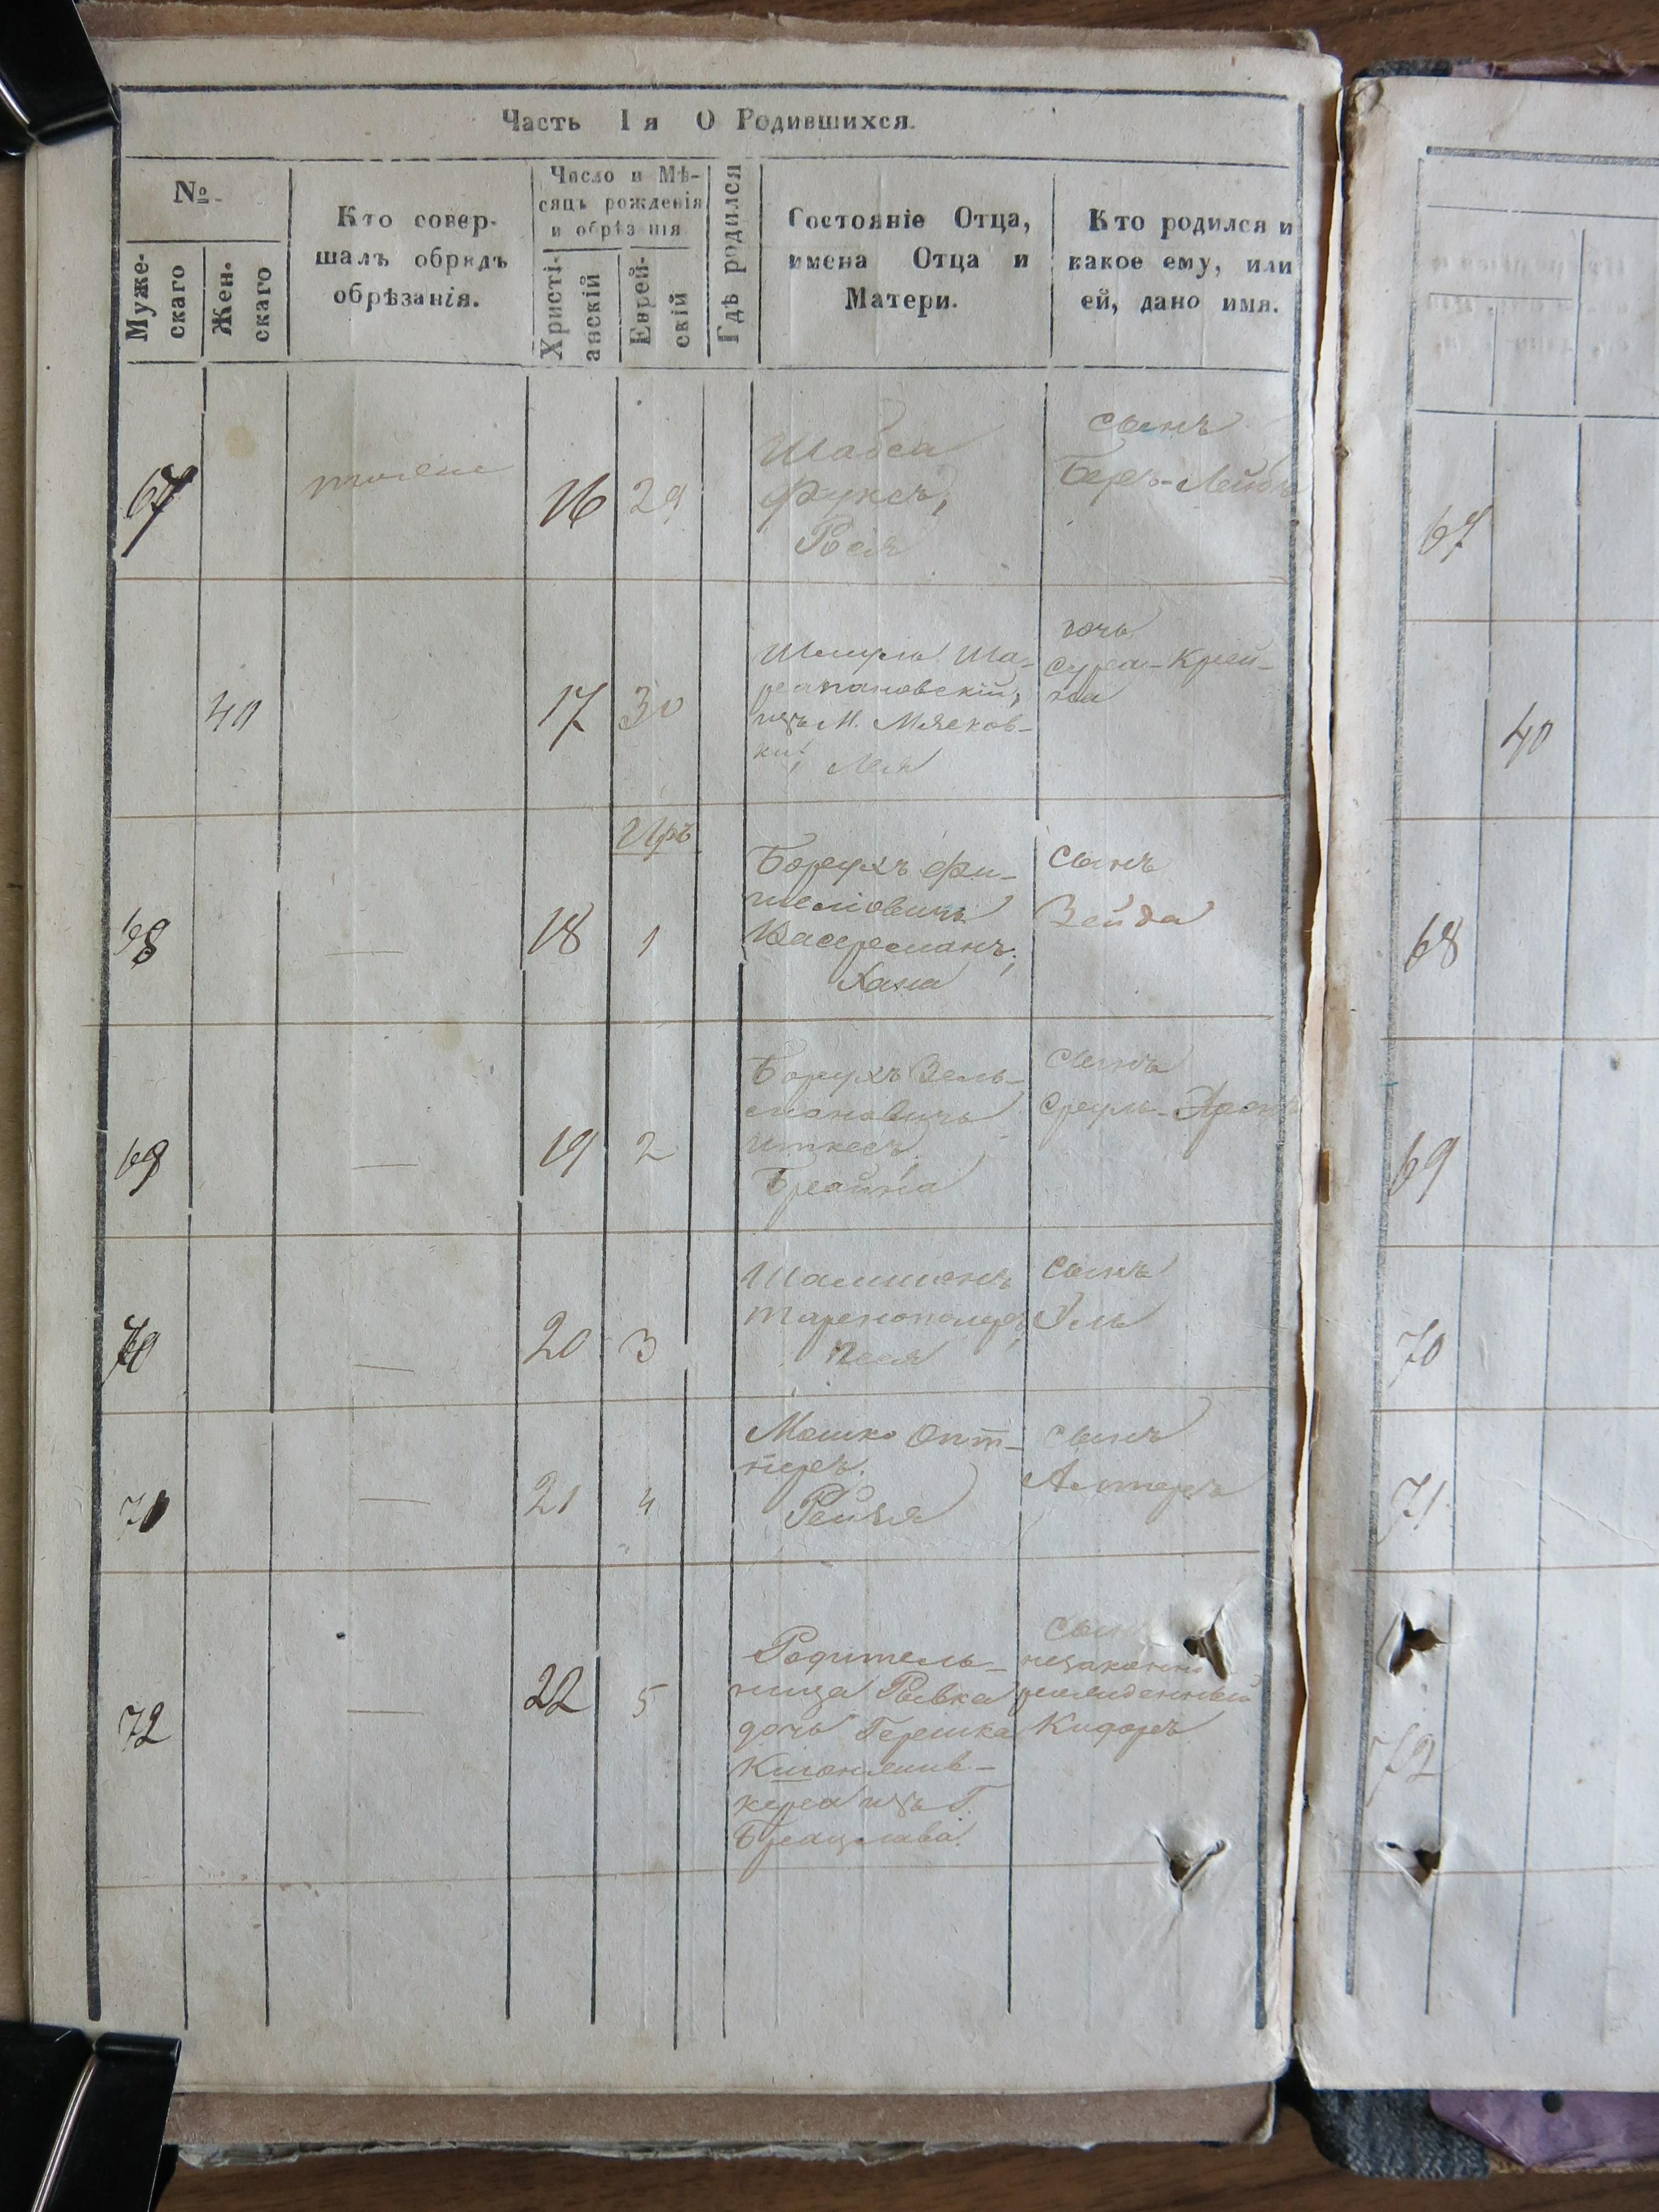 Часть I я О Родившихся.
№.
Муже-
скаго
Жен.
скаго
Кто совер-
шалъ обрядъ
обрѣзанія.
Число и Мѣ-
сяцъ рожденія
и обрѣзанія
Христі-
анскій
Еврей-
скій
Гдѣ родился
Состояніе Отца,
имена Отца и
Матери.
Кто родился и
какое ему, или
ей, дано имя.
67
16
29
Шабса
Фуксъ,
Рося
сынъ
Беръ-Лейбъ
40
17
30
Шмуль Ша-
изъ М. Мясков-
ки, Лея
дочь
Сура-Крей-
на
Иръ
68
18
1
Борухъ Фи-
шелювичъ
Васерманъ,
Хана
сынъ
Зейда
69
19
2
Борухъ Зель-
мановичъ
Иткесъ
Брайна
сынъ
Сруль-Аронъ
70
20
3
Шамшонъ
Тарнополеръ,
Песя
сынъ
Иль
71
21
4
Мошко
Рейзя
сынъ
Алтеръ
72
22
5
Родитель-
ница Рывка
дочь Гершка
кера изъ Г.
Брацлава.
сынъ
незаконно
рожденный
67
40
68
69
70
71
72